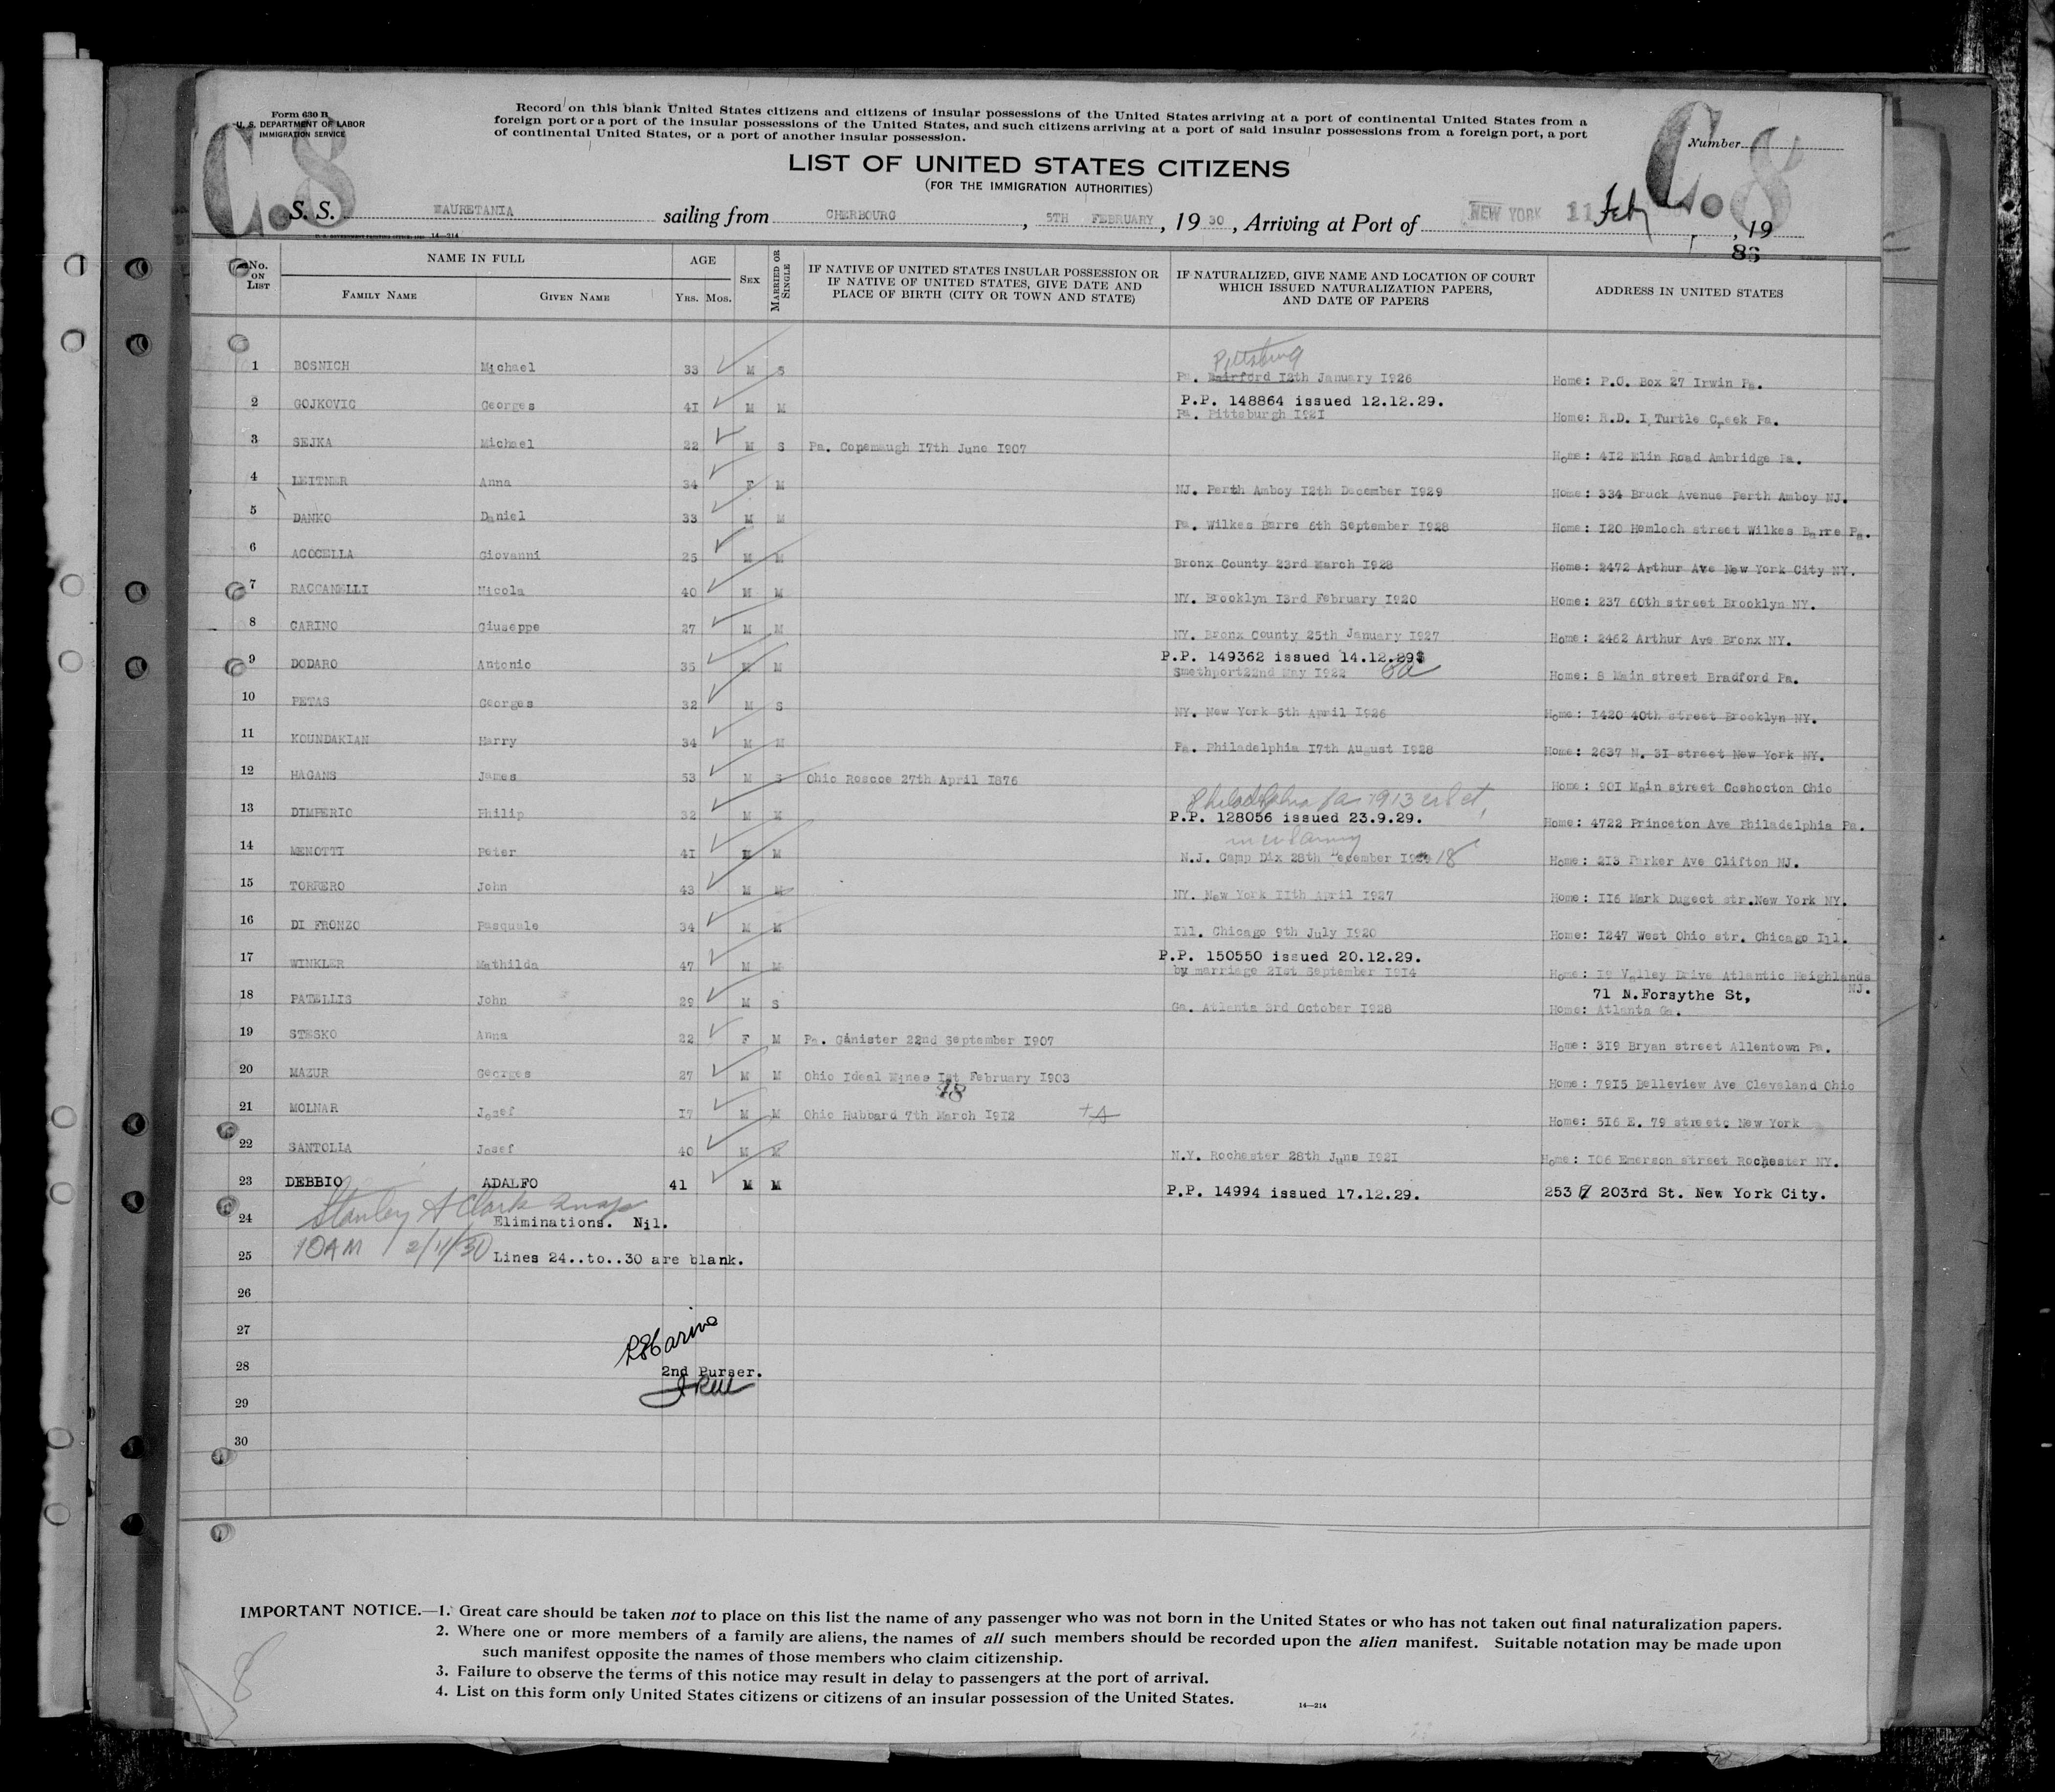 Form 630 B
U. S. DEPARTMENT OF LABOR
IMMIGRATION SERVICE
Record on this blank United States citizens and citizens of insular possessions of the United States arriving at a port of continental United States from a
foreign port or a port of the insular possessions of the United States, and such citizens arriving at a port of said insular possessions from a foreign port, a port
of continental United States, or a port of another insular possession.
Number
C.8
C.8
LIST OF UNITED STATES CITIZENS
(FOR THE IMMIGRATION AUTHORITIES)
S. S. MAURETANIA sailing from CHERBOURG, 5TH FEBRUARY, 19 30, Arriving at Port of NEW YORK 11 Feby, 19
14—214
No. ON LIST
NAME IN FULL
FAMILY NAME GIVEN NAME
AGE
YRS. MOS.
SEX
MARRIED OR SINGLE
IF NATIVE OF UNITED STATES INSULAR POSSESSION OR
IF NATIVE OF UNITED STATES, GIVE DATE AND
PLACE OF BIRTH (CITY OR TOWN AND STATE)
IF NATURALIZED, GIVE NAME AND LOCATION OF COURT
WHICH ISSUED NATURALIZATION PAPERS,
AND DATE OF PAPERS
ADDRESS IN UNITED STATES
Pittsburg
1 BOSNICH Michael 33 M S Pa. 12th January 1926 Home: P.O. Box 27 Irwin Pa.
P.P. 148864 issued 12.12.29.
2 GOJKOVIC Georges 41 M M Pa. Pittsburgh 1921 Home: R.D. I, Turtle Creek Pa.
3 SEJKA Michael 22 M S Pa. Copemaugh 17th June 1907 Home: 412 Elin Road Ambridge Pa.
4 LEITNER Anna 34 F M NJ. Perth Amboy 12th December 1929 Home: 334 Bruck Avenue Perth Amboy NJ.
5 DANKO Daniel 33 M M Pa. Wilkes Barre 6th September 1928 Home: 120 Hemloch street Wilkes Barre Pa.
6 ACOCELLA Giovanni 25 M M Bronx County 23rd March 1928 Home: 2472 Arthur Ave New York City NY.
7 BACCANELLI Nicola 40 M M NY. Brooklyn 13rd February 1920 Home: 237 60th street Brooklyn NY.
8 GARINO Giuseppe 27 M M NY. Bronx County 25th January 1927 Home: 2462 Arthur Ave Bronx NY.
P.P. 149362 issued 14.12.29
9 DODARO Antonio 35 M M Smethport 22nd May 1922 Pa Home: 8 Main street Bradford Pa.
10 PETAS Georges 32 M S NY. New York 5th April 1926 Home: 1420 40th street Brooklyn NY.
11 KOUNDAKIAN Harry 34 M M Pa. Philadelphia 17th August 1928 Home: 2637 N. 31 street New York NY.
12 HAGANS James 53 M S Ohio Roscoe 27th April 1876 Home: 901 Main street Coshocton Ohio
Philadelphia Pa 1913
13 DIMPERIO Philip 32 M M P.P. 128056 issued 23.9.29. Home: 4722 Princeton Ave Philadelphia Pa.
14 MENOTTI Peter 41 M M N.J. Camp Dix 28th December 18 Home: 213 Parker Ave Clifton NJ.
15 TORRERO John 43 M M NY. New York 11th April 1927 Home: 116 Mark Dugect str.New York NY.
16 DI FRONZO Pasquale 34 M M Ill. Chicago 9th July 1920 Home: 1247 West Ohio str. Chicago Ill.
P.P. 150550 issued 20.12.29.
17 WINKLER Mathilda 47 M M by marriage 21st September 1914 Home: 19 Valley Drive Atlantic Heighlands NJ.
71 N.Forsythe St,
18 PATELLIS John 29 M S Ga. Atlanta 3rd October 1928 Home: Atlanta Ga.
19 STESKO Anna 22 F M Pa. Ganister 22nd September 1907 Home: 319 Bryan street Allentown Pa.
20 MAZUR Georges 27 M M Ohio Ideal Mines 1st February 1903 Home: 7915 Belleview Ave Cleveland Ohio
21 MOLNAR Josef 17 M M Ohio Hubbard 7th March 1912 Home: 516 E. 79 streete New York
22 SANTOLIA Josef 40 M M N.Y. Rochester 28th June 1921 Home: 106 Emerson street Rochester NY.
23 DEBBIO ADALFO 41 M M P.P. 14994 issued 17.12.29. 253 E 203rd St. New York City.
Stanley A Clark
24 Eliminations. Nil.
10 AM 2/11/30
25 Lines 24..to..30 are blank.
26
27
28 2nd Purser.
29
30
IMPORTANT NOTICE.—1. Great care should be taken not to place on this list the name of any passenger who was not born in the United States or who has not taken out final naturalization papers.
2. Where one or more members of a family are aliens, the names of all such members should be recorded upon the alien manifest. Suitable notation may be made upon
such manifest opposite the names of those members who claim citizenship.
3. Failure to observe the terms of this notice may result in delay to passengers at the port of arrival.
4. List on this form only United States citizens or citizens of an insular possession of the United States.
14—214
8